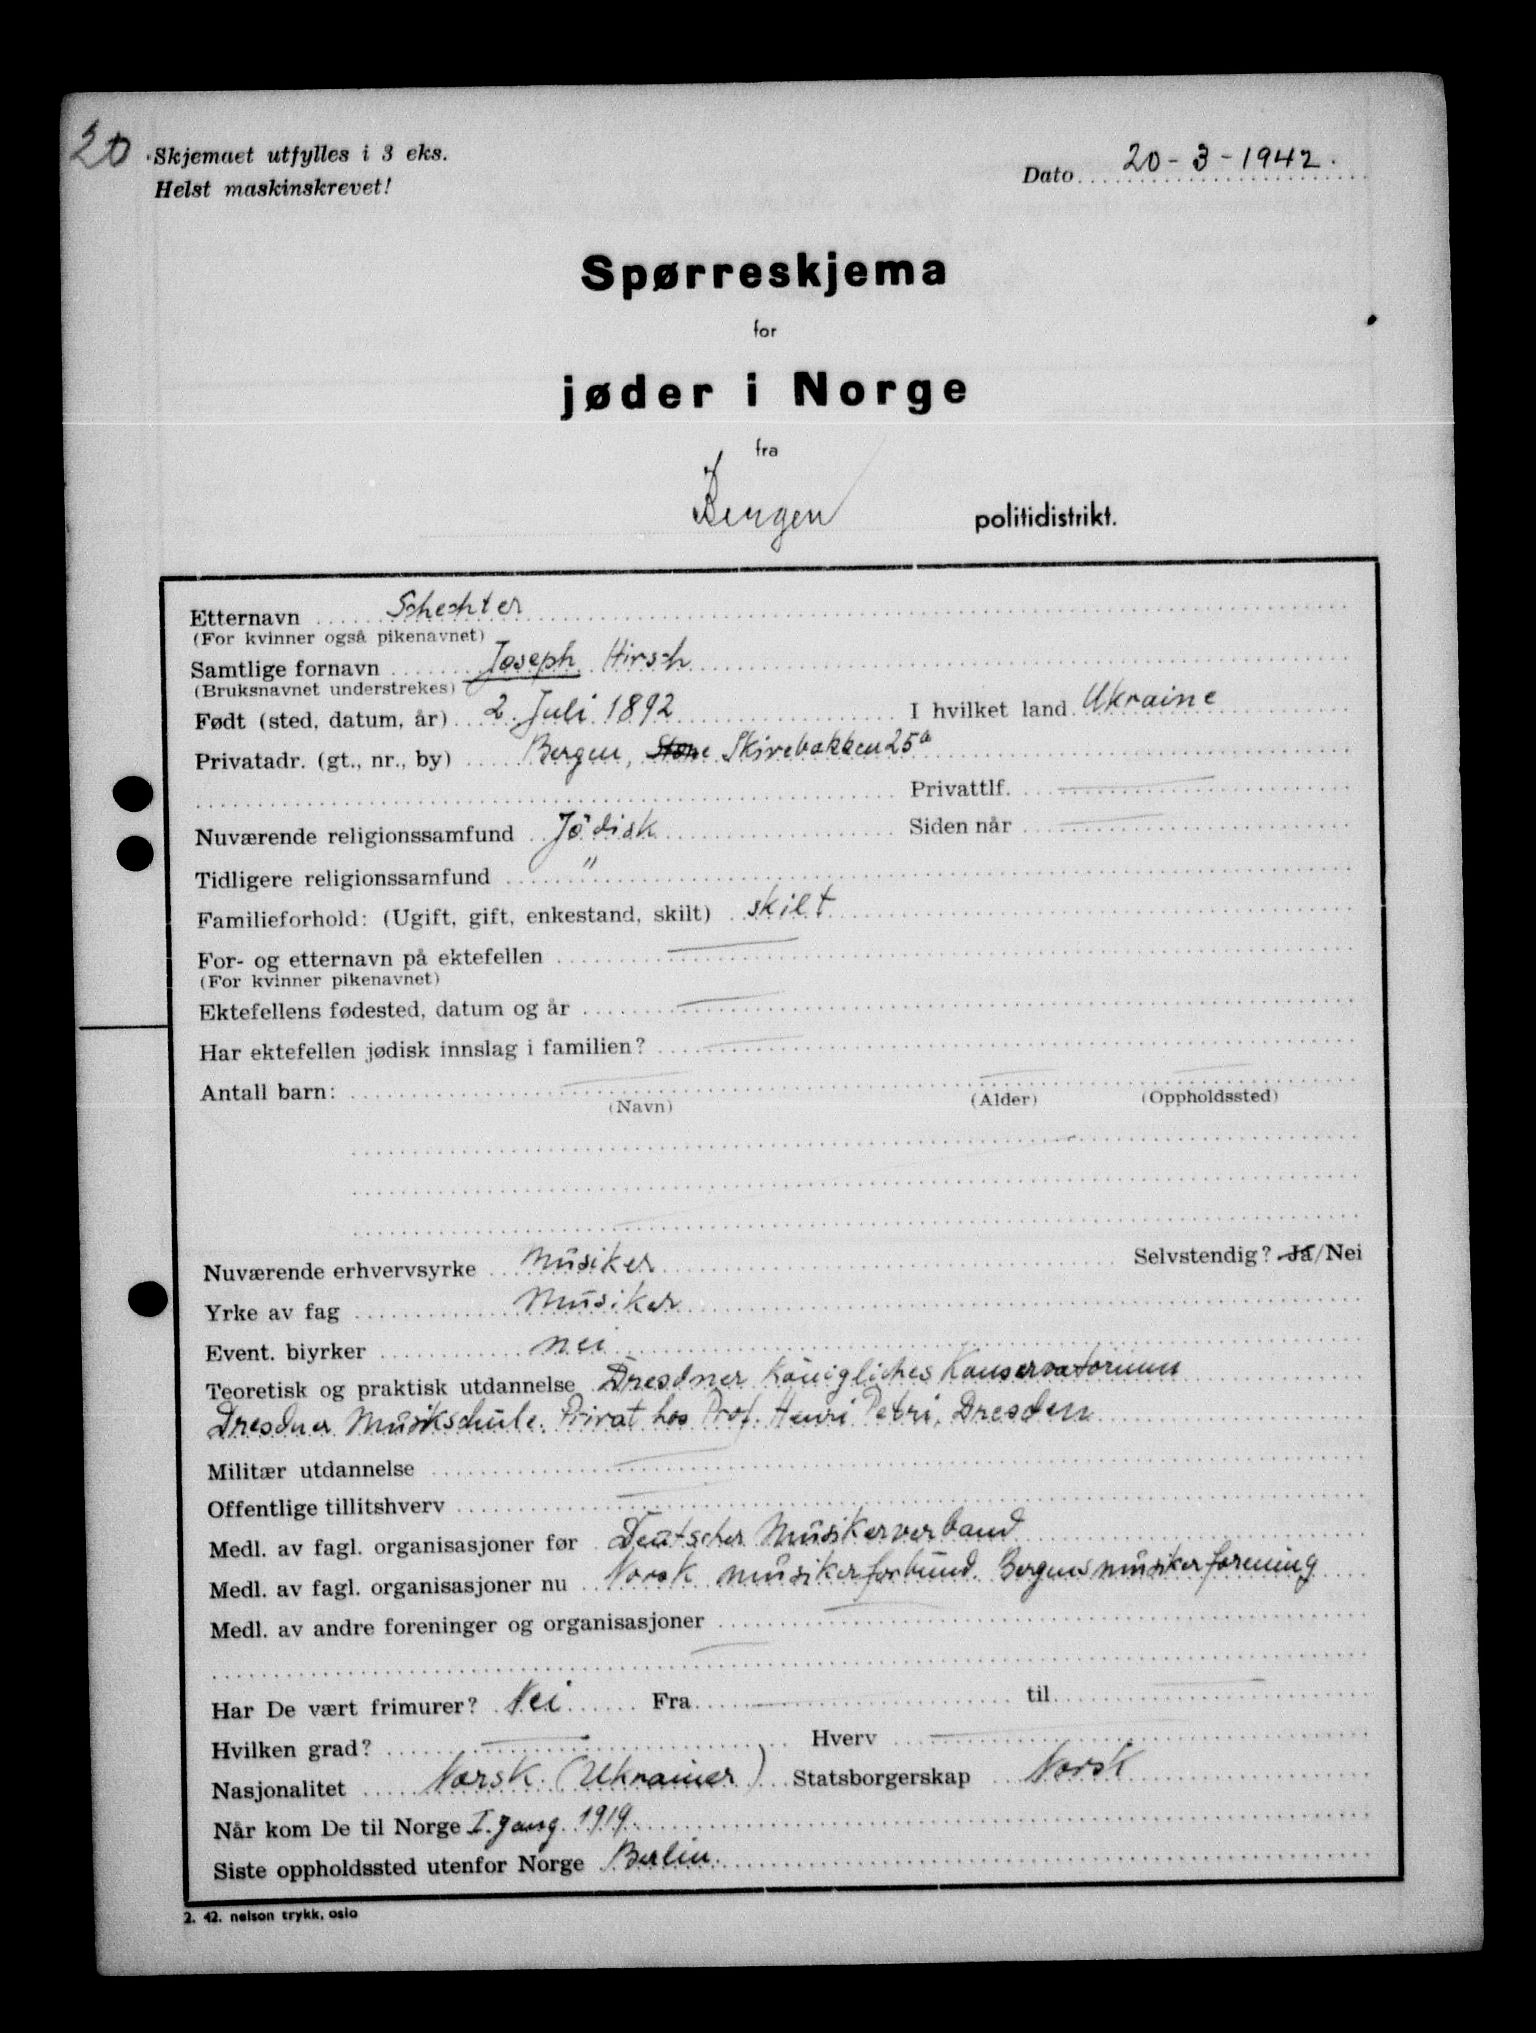 20 Skjemaet utfylles i 3 eks.
Helst maskinskrevet!
Dato 20-3-1942.
Spørreskjema
for
jøder i Norge
fra
Bergen politidistrikt.
Etternavn Schechter
(For kvinner også pikenavnet)
Samtlige fornavn Joseph Hirsch
(Bruksnavnet understrekes)
Født (sted, datum, år) 2. Juli 1892 I hvilket land Ukraine
Privatadr. (gt., nr., by) Bergen, Skivebakken 25a
Privattlf.
Nuværende religionssamfund Jödisk Siden når
Tidligere religionssamfund "
Familieforhold: (Ugift, gift, enkestand, skilt) skilt
For- og etternavn på ektefellen
(For kvinner pikenavnet)
Ektefellens fødested, datum og år
Har ektefellen jødisk innslag i familien?
Antall barn:
(Navn) (Alder) (Oppholdssted)
Nuværende erhvervsyrke Musiker Selvstendig? Ja/Nei
Yrke av fag Musiker
Event. biyrker nei
Teoretisk og praktisk utdannelse Dresdner Königliches Konservatorium
Dresdner Musikschule. Privat hos Prof. Henri Petri, Dresden
Militær utdannelse
Offentlige tillitshverv
Medl. av fagl. organisasjoner før Deutscher Musikerverband
Medl. av fagl. organisasjoner nu Norsk musikerforbund. Bergens musikerforening
Medl. av andre foreninger og organisasjoner
Har De vært frimurer? Nei Fra til
Hvilken grad? Hverv
Nasjonalitet Norsk (Ukrainer) Statsborgerskap Norsk
Når kom De til Norge I. gang 1919.
Siste oppholdssted utenfor Norge Berlin.
2. 42. nelson trykk, oslo